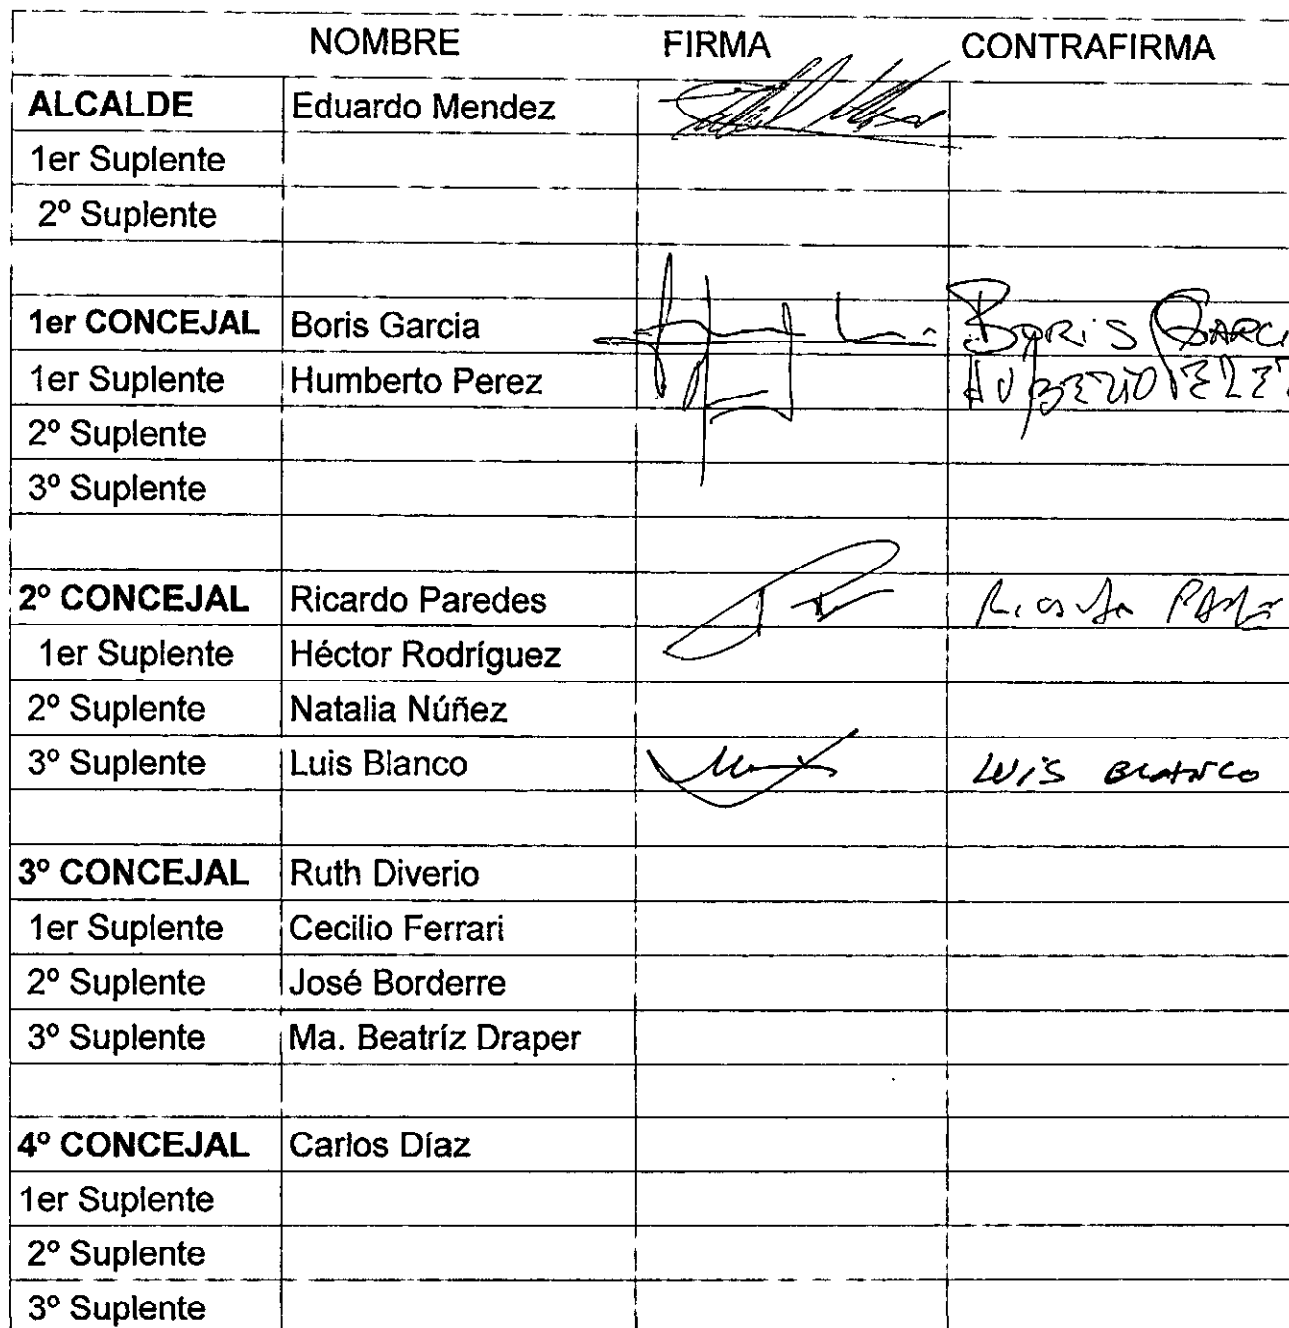 NOMBRE FIRMA CONTRAFIRMA
ALCALDE Eduardo Mendez
1er Suplente
2º Suplente
1er CONCEJAL Boris Garcia BORIS GARCI
1er Suplente Humberto Perez
2º Suplente
3º Suplente
2º CONCEJAL Ricardo Paredes
1er Suplente Héctor Rodríguez
2º Suplente Natalia Núñez
3º Suplente Luis Blanco LUIS BLANCO
3º CONCEJAL Ruth Diverio
1er Suplente Cecilio Ferrari
2º Suplente José Borderre
3º Suplente Ma. Beatríz Draper
4º CONCEJAL Carlos Díaz
1er Suplente
2º Suplente
3º Suplente